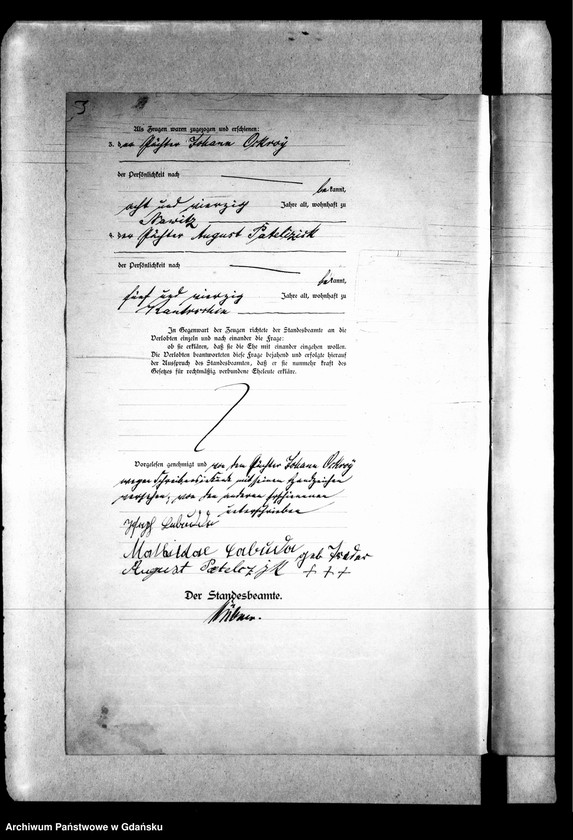 3
Als Zeugen waren zugezogen und erschienen:
3. der Pächter Johann Oskroÿ
der Persönlichkeit nach
bekannt,
acht und vierzig Jahre alt, wohnhaft zu
4. der Pächter August
der Persönlichkeit nach
bekannt,
fünf und vierzig Jahre alt, wohnhaft zu
In Gegenwart der Zeugen richtete der Standesbeamte an die
Verlobten einzeln und nach einander die Frage:
ob sie erklären, daß sie die Ehe mit einander eingehen wollen.
Die Verlobten beantworteten diese Frage bejahend und erfolgte hierauf
der Ausspruch des Standesbeamten, daß er sie nunmehr kraft des
Gesetzes für rechtmäßig verbundene Eheleute erkläre.
Vorgelesen genehmigt und von dem Pächter Johann Oskroÿ
wegen Schreibensunkunde mit seinem Handzeichen
versehen, von den anderen Erschienenen
unterschrieben
Labudda
Mathildae Labuda geb
August +++
Der Standesbeamte.
Archiwum Państwowe w Gdańsku